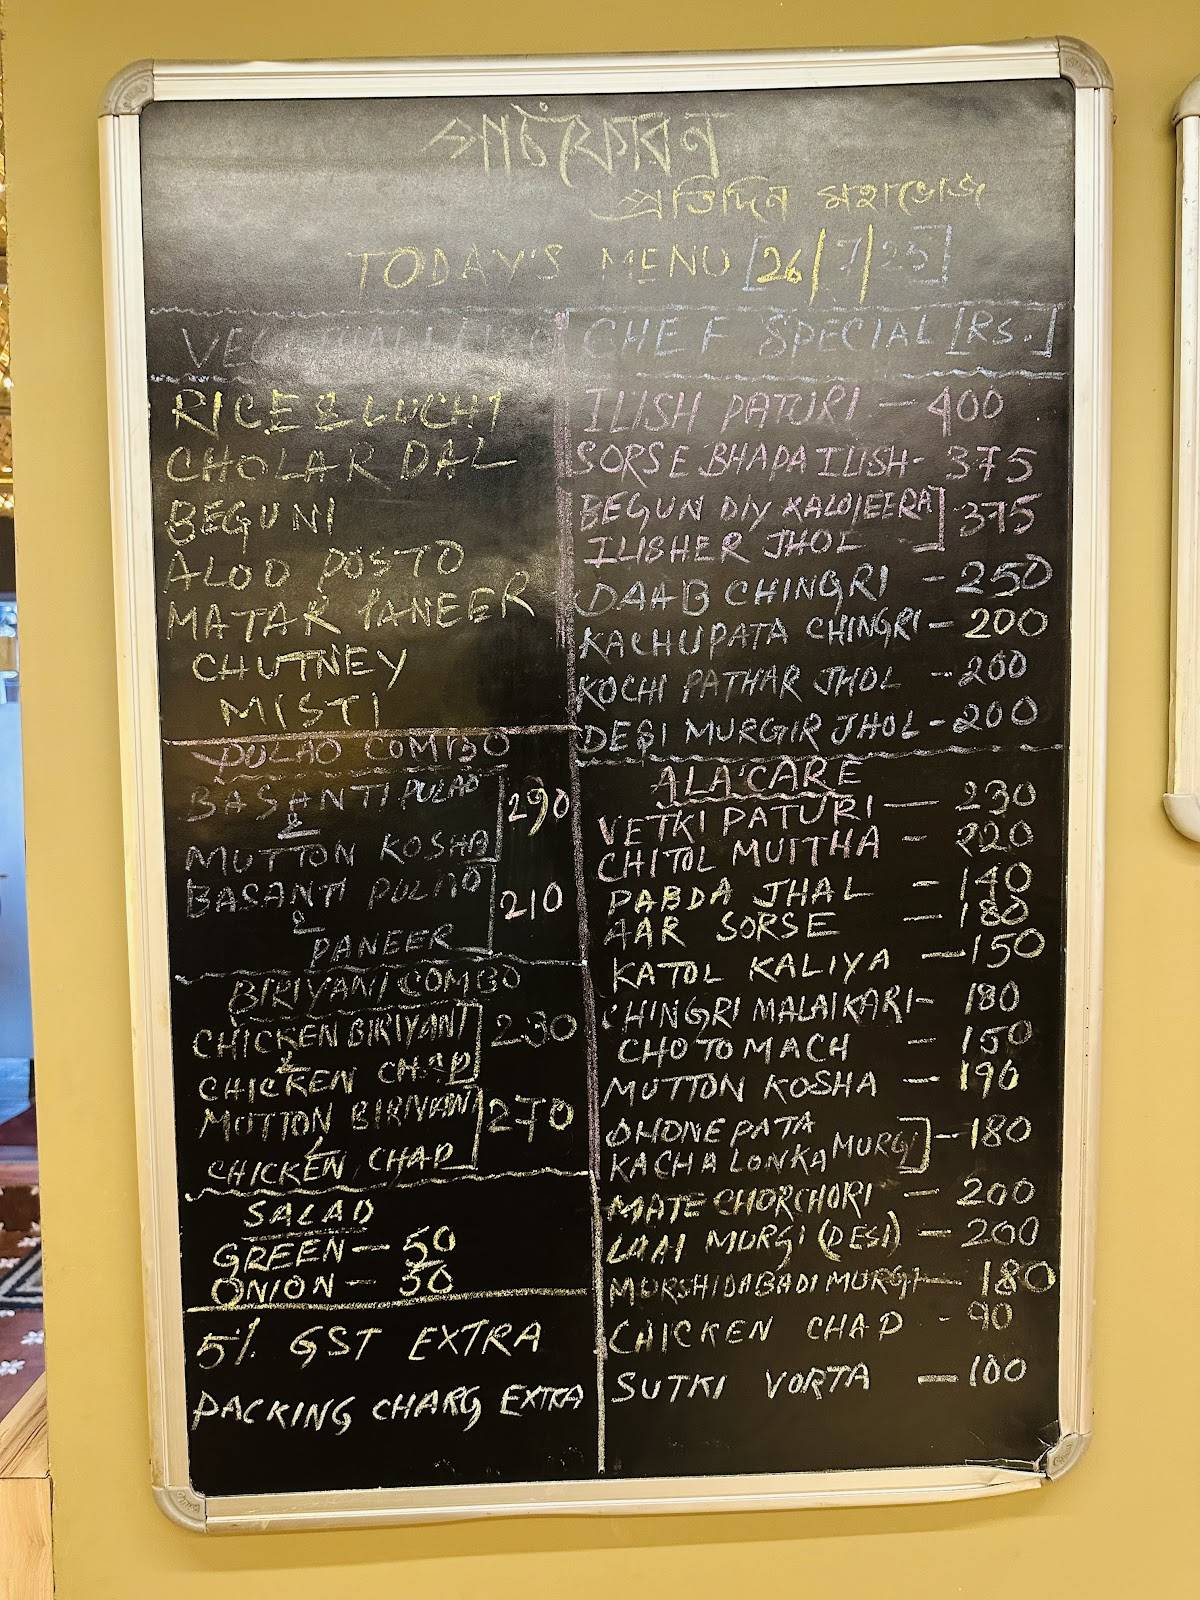 পাঁচফোরন
প্রতিদিন মহাভোজ
TODAY'S MENU [26/7/25]
RICE & LUCHI
CHOLAR DAL
BEGUNI
ALOO POSTO
MATAR PANEER
CHUTNEY
MISTI
PULAO COMBO
BASANTI PULAO
&
MUTTON KOSHA
290
BASANTI PULAO
&
PANEER
210
BIRIYANI COMBO
CHICKEN BIRIYANI
&
CHICKEN CHAP
230
MUTTON BIRIYANI
&
CHICKEN CHAP
270
SALAD
GREEN - 50
ONION - 50
5% GST EXTRA
PACKING CHARG EXTRA
CHEF SPECIAL [RS.]
ILISH PATURI - 400
SORSE BHAPA ILISH - 375
BEGUN DIY KALOJEERA
ILISHER JHOL
375
DAAB CHINGRI - 250
KACHUPATA CHINGRI - 200
KOCHI PATHAR JHOL - 200
DESI MURGIR JHOL - 200
ALA'CARE
VETKI PATURI - 230
CHITOL MUITHA - 220
PABDA JHAL - 140
AAR SORSE - 180
KATOL KALIYA - 150
CHINGRI MALAIKARI - 180
CHOTO MACH - 150
MUTTON KOSHA - 190
DHONE PATA
KACHA LONKA MURGI - 180
MATE CHORCHORI - 200
LAAL MURGI (DESI) - 200
MURSHIDABADI MURGI - 180
CHICKEN CHAP - 90
SUTKI VORTA - 100